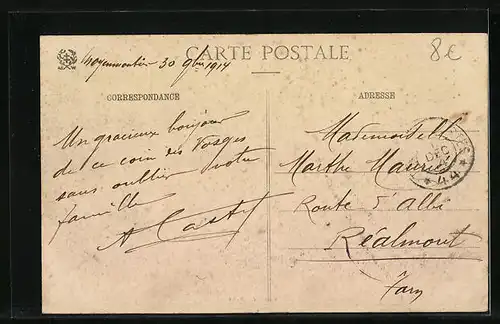 CARTE POSTALE
8€
Moyenmoutier 30 9bre 1914
CORRESPONDANCE
ADRESSE
Un gracieux bonjour
de ce coin des Vosges
sans oublier votre
famille
A Casty
Mademoiselle
Marthe Maurel
Route d'Albi
Réalmont
Tarn
DEC
* 44 *